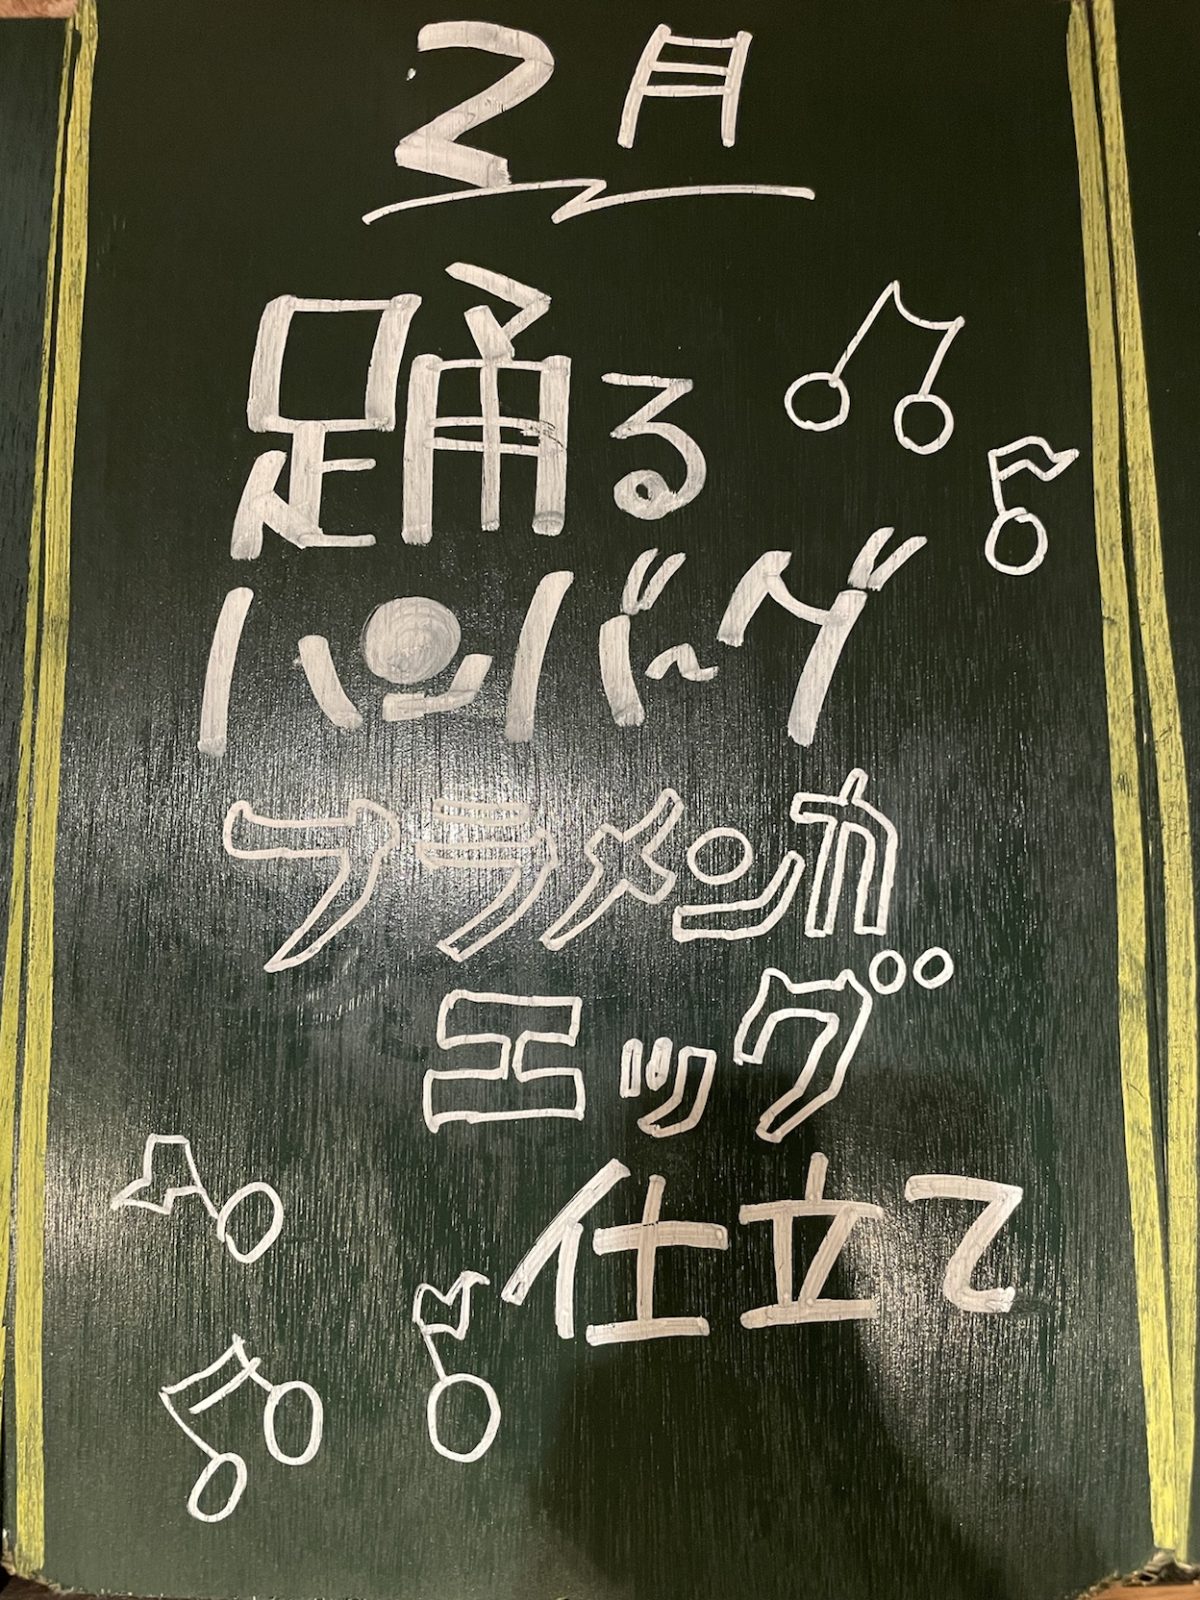 2月
踊る
ハンバーグ
フラメンカ
エッグ
仕立て